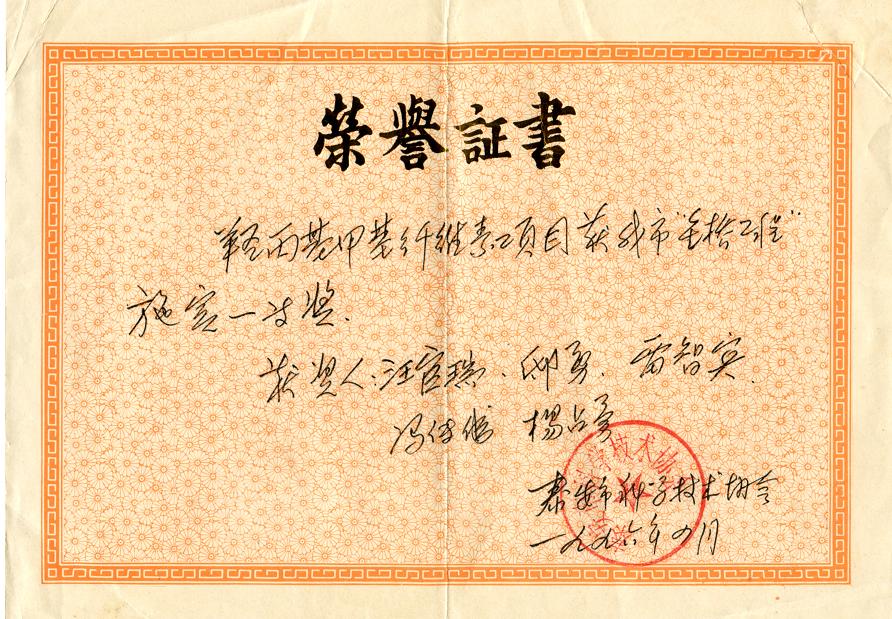 榮譽証書
羟丙基甲基纤维素项目获我市“金桥工程”
施实一等奖.
获奖人:汪官瑞、邱勇、雷智实、
杨占勇
泰安市科学技术协会
一九九六年四月